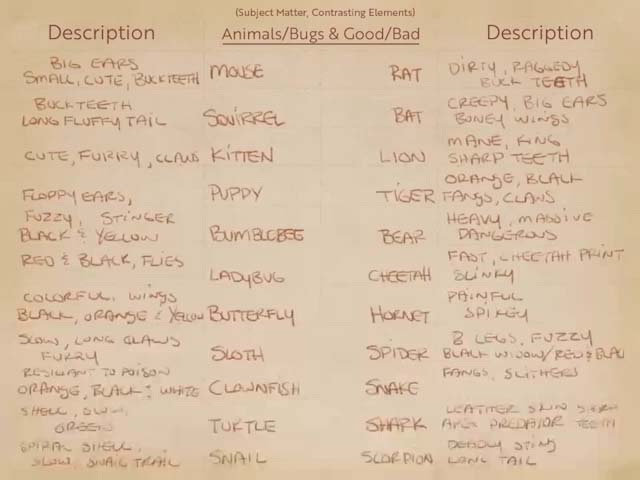 (Subject Matter, Contrasting Elements)
Description Animals/Bugs & Good/Bad Description
BIG EARS
SMALL, CUTE, BUCKTEETH MOUSE RAT DIRTY, RAGGEDY
BUCK TEETH
BUCKTEETH
LONG FLUFFY TAIL SQUIRREL BAT CREEPY, BIG EARS
BONEY WINGS
CUTE, FURRY, CLAWS KITTEN LION MANE, KING
SHARP TEETH
FLOPPY EARS, PUPPY TIGER ORANGE, BLACK
FANGS, CLAWS
FUZZY, STINGER
BLACK & YELLOW BUMBLEBEE BEAR HEAVY, MASSIVE
DANGEROUS
RED & BLACK, FLIES LADYBUG CHEETAH FAST, CHEETAH PRINT
SLINKY
COLORFUL, WINGS
BLACK, ORANGE & YELLOW BUTTERFLY HORNET PAINFUL
SPIKEY
SLOW, LONG CLAWS
FURRY SLOTH SPIDER 8 LEGS, FUZZY
BLACK WIDOW/RED & BLACK
RESISTANT TO POISON
ORANGE, BLACK & WHITE CLOWNFISH SNAKE FANGS, SLITHERS
SHELL, SLOW,
GREEN TURTLE SHARK LEATHER SKIN
APEX PREDATOR TEETH
SPIRAL SHELL,
SLOW, SNAIL TRAIL SNAIL SCORPION DEADLY STING
LONG TAIL